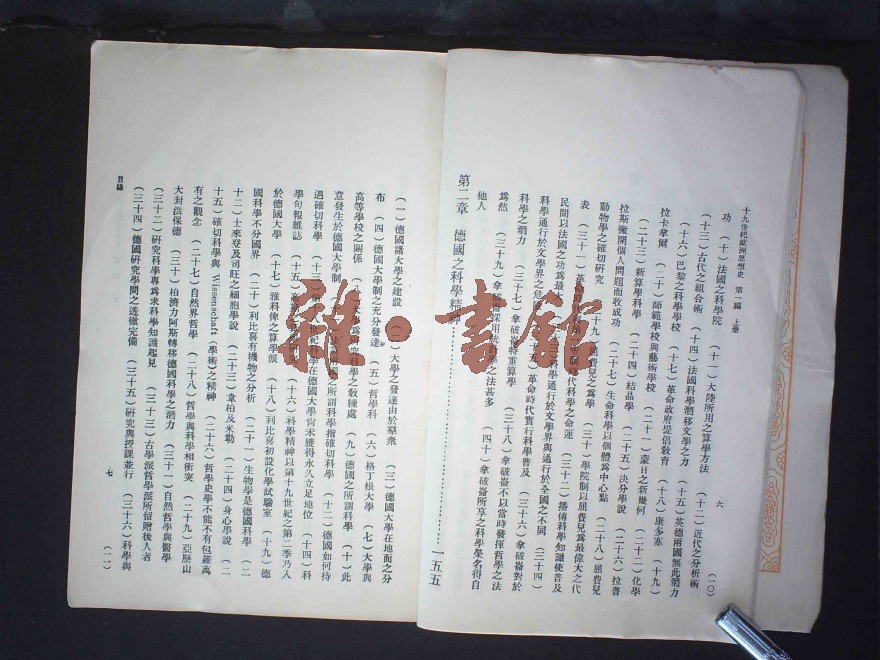 十九世紀歐洲思想史 第一編 上册
六
(一〇)
功 (十)法國之科學院 (十一)大陸所用之算學方法 (十二)近代之分析術
(十三)古代之組合術 (十四)法國科學潛移文學之力 (十五)英德兩國無此潛力
(十六)巴黎之科學學校 (十七)革命政府提倡敎育 (十八)康多塞 (十九)
拉卡拿爾 (二十)師範學校與藝術學校 (二十一)蒙日之新幾何 (二十二)化學
(二十三)新算學科學 (二十四)結晶學 (二十五)決分學說 (二十六)拉普
拉斯撇開個人問題而收成功 (二十七)生命科學以個體爲中心點 (二十八)屈費兒
動物學之確切研究 屈費兒之爲學 (三十)學院制以屈費兒爲最偉大之代
表 (三十一)革 時代科學之命運 (三十二)播傳科學知識使普及
民間以法國之功爲最 科學通行於文學界與通行於全國之不同 (三十四)
科學通行於文學界之危 (三十五)革命時代實行科學普及 (三十六)拿破崙對於
科學之潛力 (三十七)拿破崙特重算學 (三十八)拿破崙不以當時發揮哲學之法
爲然 (三十九)拿破崙採用統 之法甚多 (四十)拿破崙所享之科學榮名得自
他人
第二章 德國之科學精神 一五五
(一)德國諸大學之建設 (二)大學之發達由於羣衆 (三)德國大學在地面之分
布 (四)德國大學制之充分發達 (五)哲學科 (六)格丁根大學 (七)大學與
高等學校之關係 (八)大學爲研究科學之敎練處 (九)德國之所謂科學 (十)此
意發生於德國大學制 國之所謂科學指確切科學 (十二)德國如何待
遇確切科學 (十三)第十八世紀科學在德國大學尙未獲得永久立足地位 (十四)科
學旬報雜誌 (十五)高 (十六)科學精神以第十九世紀之第二季乃入
於德國大學 (十七)雅科俾之算學派 (十八)利比喜初設化學試驗室 (十九)德
國科學不分國界 (二十)利比喜有機物之分析 (二十一)生物學是德國科學 (二
十二)士來登及司旺之細胞學說 (二十三)韋柏及米勒 (二十四)身心學說 (二
十五)確切科學與 Wissenschaft(學術)之精神 (二十六)哲學史學不能不有包羅萬
有之觀念 (二十七)自然界哲學 (二十八)哲學與科學相衝突 (二十九)亞歷山
大封洪保德 (三十)柏濟力阿斯轉移德國科學之潛力 (三十一)自然哲學與醫學
(三十二)研究科學專爲求科學知識起見 (三十三)古學派哲學派所留贈後人者
(三十四)德國研究學問之透徹完備 (三十五)研究與授課並行 (三十六)科學與
目錄
七
(一一)
雅·書館